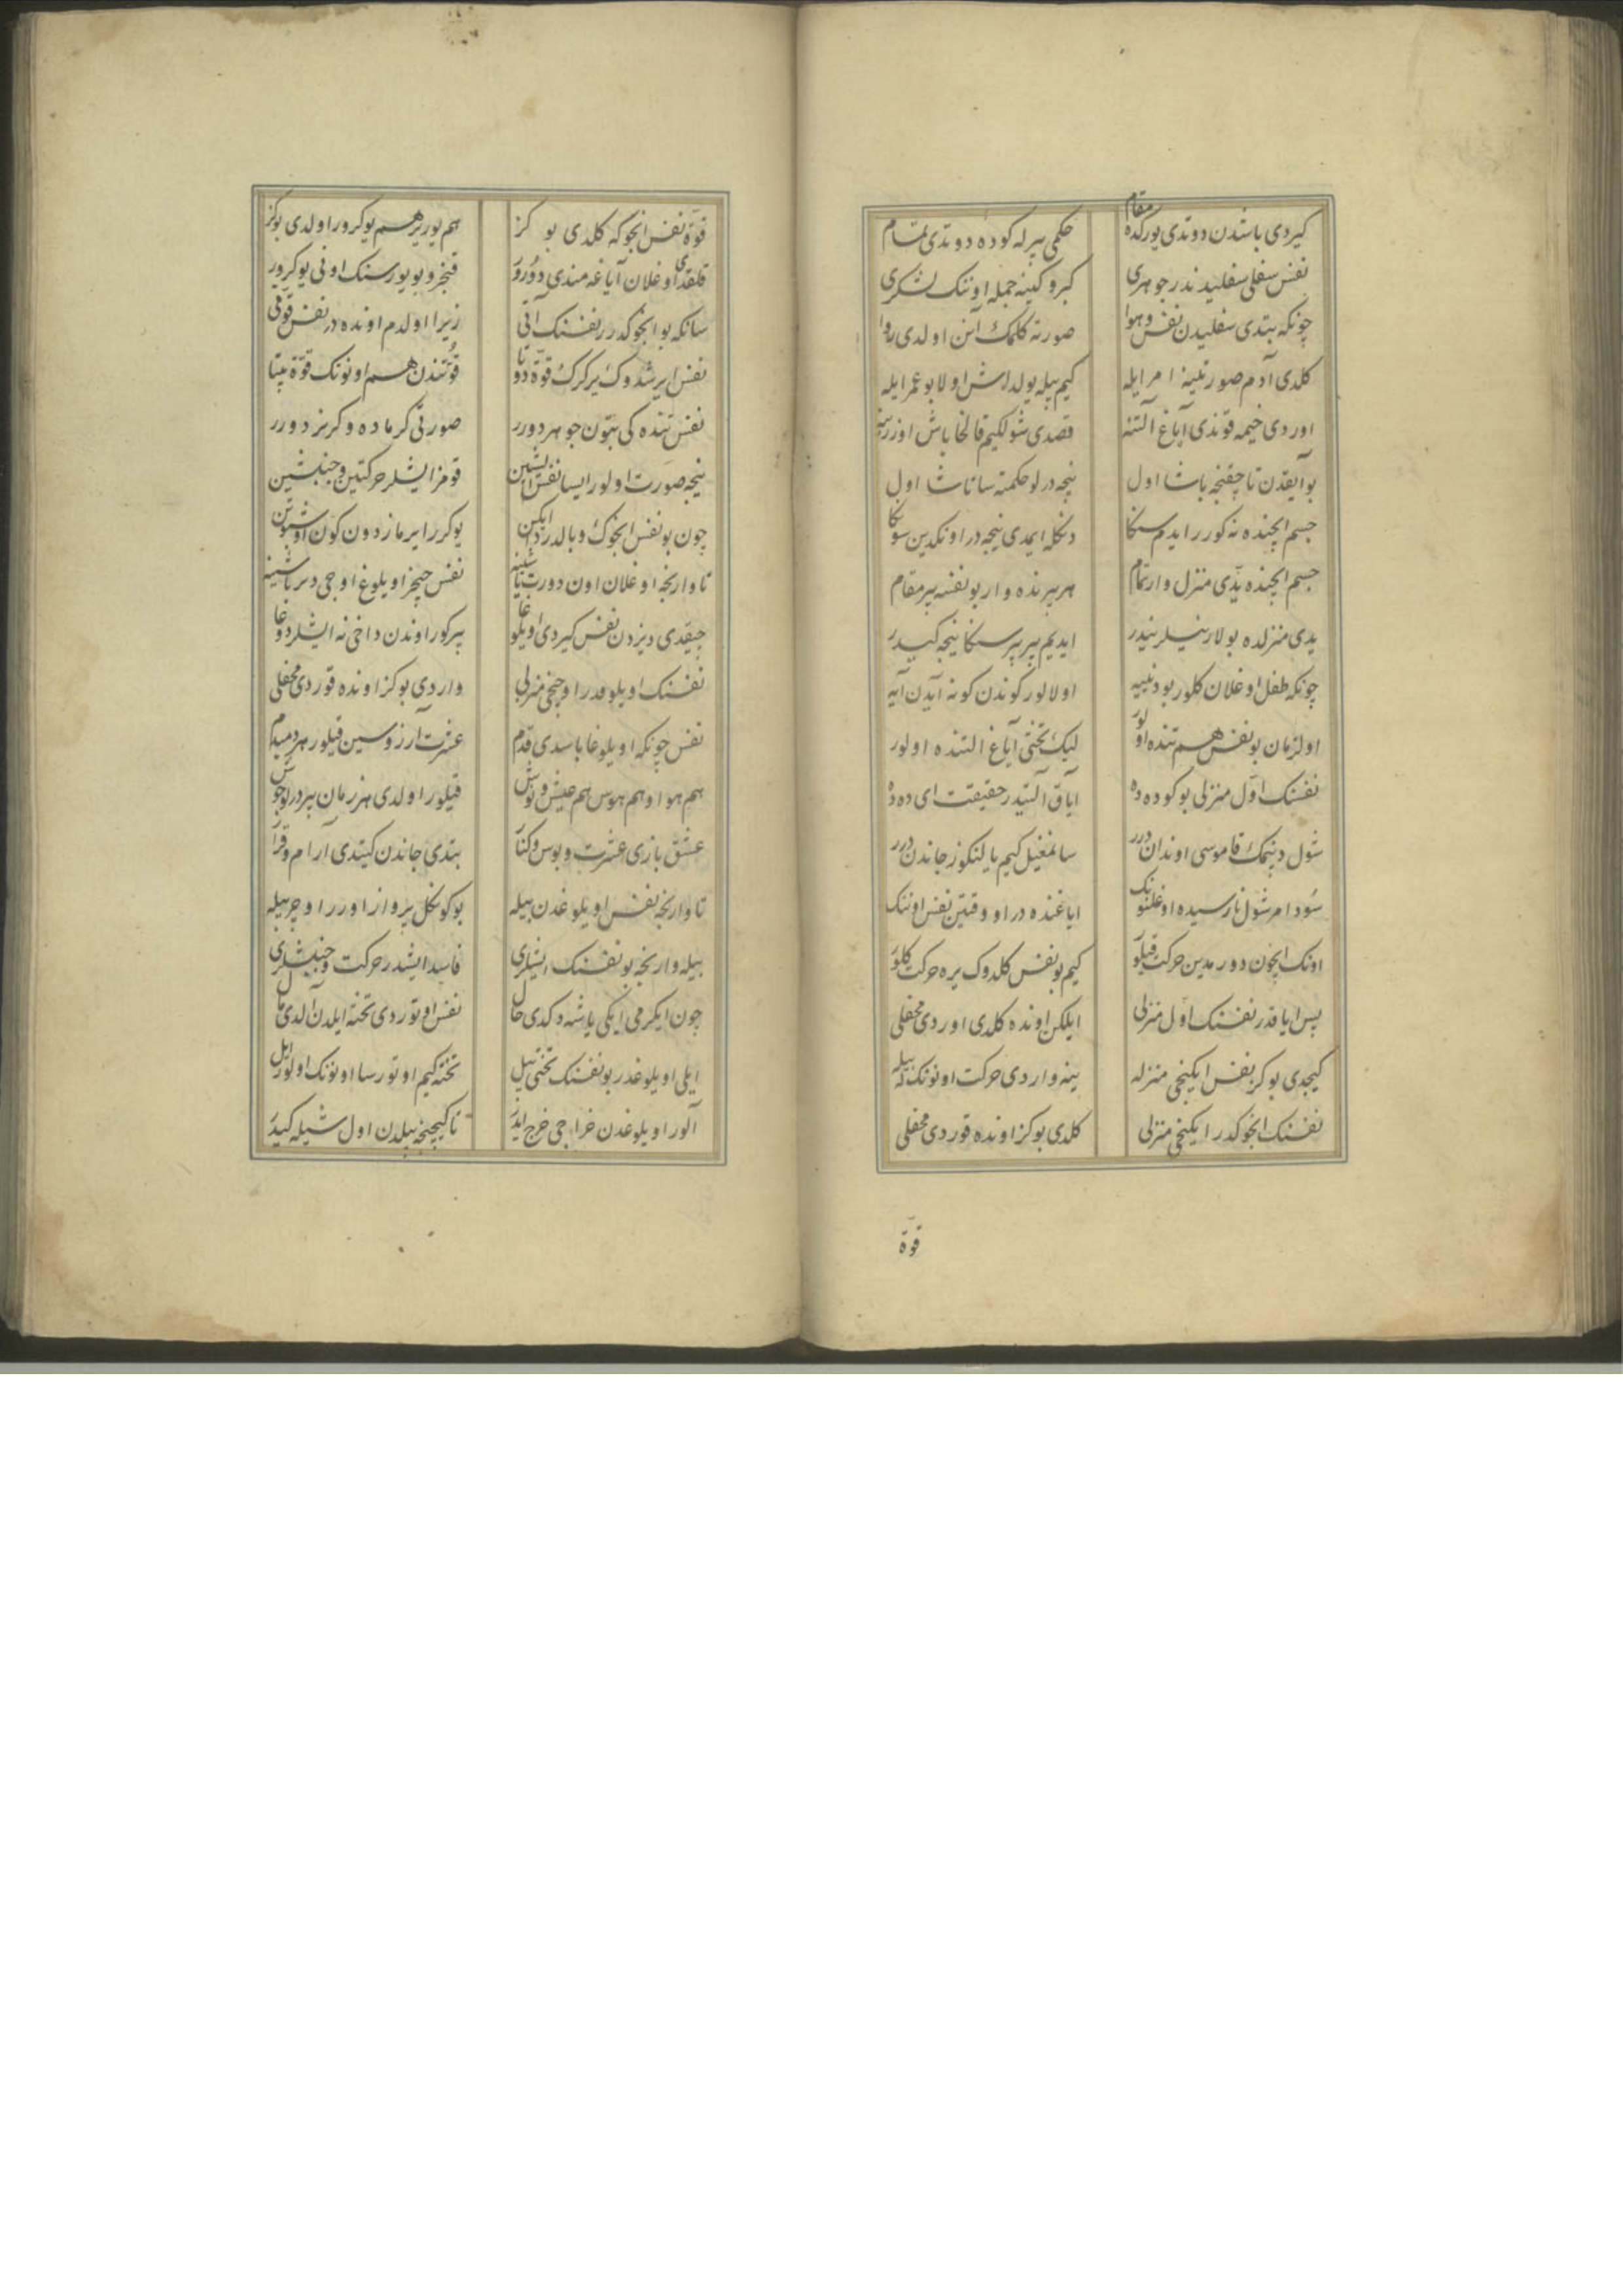 كیردی باشدن دوندی یورکده مقام حکمی بیرله کوده دوندی تمام
نفس سفلی سفلیدندر جوهری کبر و کینه جمله اوننک لشکری
چونکه بتدی سفلیدن نفس و هوا صورته کلمک آنن اولدی روا
کلدی آدم صورتینه امر ایله کیم بیله یولداش اولا بو عمر ایله
اوردی خیمه قوندی آیاغ آلتنه قصدی شولکیم قالخا باش اوزرینه
بو آیقدن تا چقنجه باشا اول نیجه درلو حکمته ساتاشا اول
جسم ایچنده نه کورر ایدم سنکا دنکله ایمدی نیجه در اونکدین سونکا
جسم ایچنده یدی منزل وار تمام هر بیرنده وار بو نفسه بیر مقام
یدی منزلده بولار نیلر نیدر ایدیم بیر بیر سنکا نیجه کیدر
چونکه طفل اوغلان کلور بو دنییه اولالور کوندن کونه آیدن آیه
اول زمان بو نفس هم تنده اولور لیک تختی آیاغ التنده اولور
نفسنک اول منزلی بو کوده ده آیاق آلتیدر حقیقت ای دده
شول دپنمک قاموسی اوندان درر سانمغیل کیم یالنکوز جاندن درر
سود امر شول نارسیده اوغلنونک ایاغنده در او وقتین نفس اوننک
اونک ایچون دورمدین حرکت قیلور کیم بو نفس کلدوک یره حرکت کلور
پس ایاقدر نفسنک اول منزلی ایلکن اونده کلدی اوردی محفلی
کیچدی بو کز نفس ایکنجی منزله ینه واردی حرکت اوننک بیله
نفسنک انجوکدر ایکنجی منزلی کلدی بو کز اونده قوردی محفلی
قوة
قوة نفس انجوکه کلدی بو کز هم یوریر هم یوکرور اولدی بو کز
قلقدی اوغلان آیاغه مندی دورور قنجرو بویورسنک اونی یوکرور
سانکه بو انجوکدر نفسنک آتی زیرا اولدم اونده در نفس قوتی
نفس ایرشدوک یر کرک قوة دوتا قوتندن هم اوننک قوة بیتا
نفس تنده کی بتون جوهر دورر صورتی کرماده و کرنر دورر
نیجه صورت اولور ایسا نفس ایشین قومز ایشلر حرکتین و جنبشین
چون بو نفس انجوک و بالدر ایکن یوکرر ایرماز دون کون
تا وارنجه اوغلان اون دورت یاشینه نفس چیخر اویلوغ اوجی دیر باشینه
چیقدی دیزدن نفس کیردی اویلوغا بیر کور اوندن داخی نه ایشلر دوغا
نفسنک اویلوقدر اوچنجی منزلی واردی بو کز اونده قوردی محفلی
نفس چونکه اویلوغا باسدی قدم عشرت آرزوسین قیلور هر دمبدم
هم هوا و هم هوس هم عیش و نوش قیلور اولدی هر زمان بیر درلو جوش
عشق بازی عشرت و بوس و کنار بتدی جاندن کیتدی آرام و قرار
تا وارنجه نفس اویلوغدن بیله بو کونکل پرواز اورر اوچر بیله
بیله وارنجه بو نفسنک ایشلری فاسد ایشدر حرکت و جنبشلری
چون ایکرمی ایکی یاشه دکدی حال نفس اوتوردی تخته ایلدن آلدی مال
ایلی اویلوغدر بو نفسنک تختی بیل تخته کیم اوتورسا اوننک اولور ایل
آلور اویلوغدن خراجی خرج ایدر تا کیچنجه بیلدن اول شیله کیدر